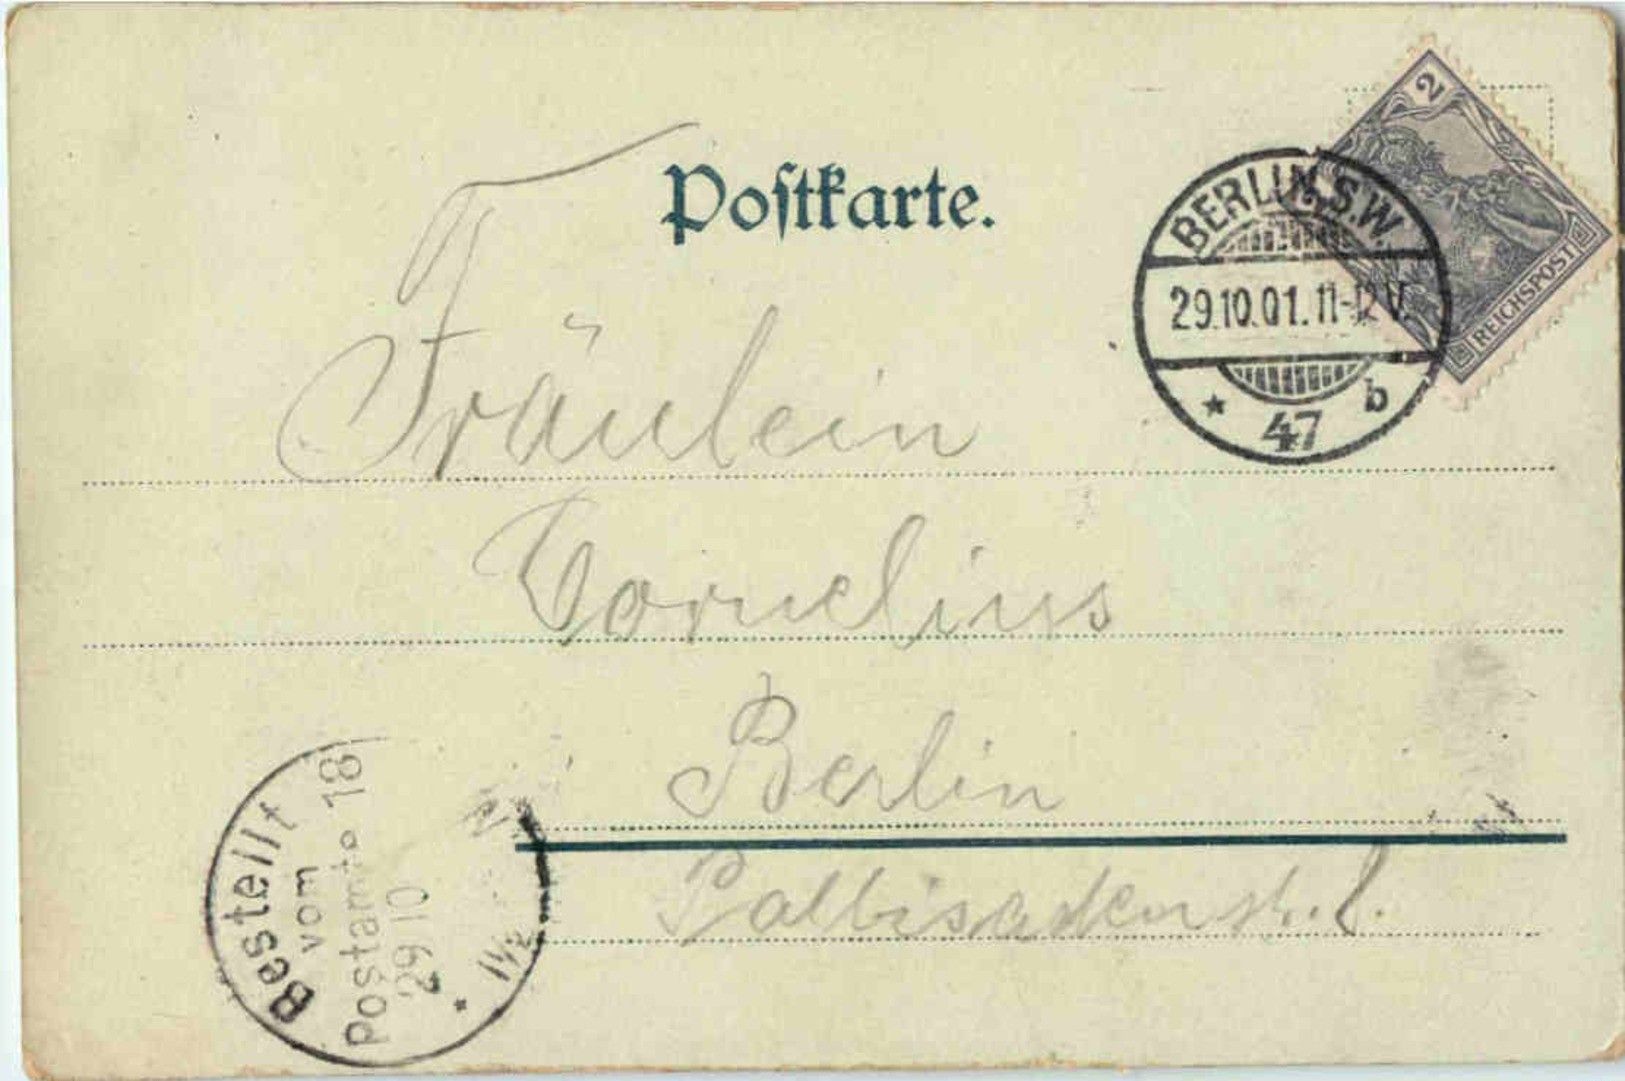 Poſtkarte.
2
REICHSPOST
BERLIN, S.W.
29.10.01. 11-12 V.
* 47 b
Fräulein
Cornelius
Berlin
Pallisadenstr.
Bestellt
vom
Postamte 18
29 10